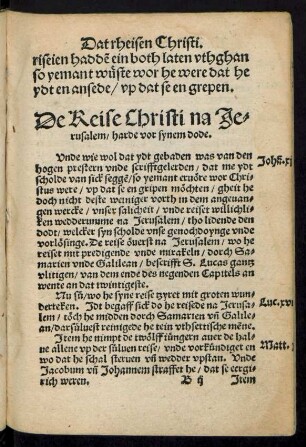 Dat rheisen Christi.
riseien haddē ein both laten vthghan
so yemant wüste wor he were dat he
ydt en ansede/ vp dat se en grepen.
De Reise Christi na Je-
rusalem/ harde vor synem dode.
Vnde wie wol dat ydt gebaden was van den
hogen prestern vnde scrifftgelerden/ dat me ydt
scholde van sick segge/ so yemant eruöre wor Chri-
stus were/ vp dat se en gripen möchten/ gheit he
doch nicht deste weniger vorth in dem angeuangen
wercke/ vnser salicheit/ vnde reiset willichli-
ken wedderumme na Jerusalem/ tho lidende den
dodt/ welcker syn scholde vnse genochdoynge vnde
vorlösinge. De reise öuerst na Jerusalem/ wo he
reiset mit predigende vnde mirakeln/ dorch Sa-
marien vnde Galilean/ bescrifft S. Lucas gantz
vlitigen/ van dem ende des negenden Capitels an
wente an dat twintigeste.
Nu sü/ wo he syne reise zyret mit groten wun-
derteken. Jdt begaff sick do he reisede na Jerusa-
lem/ töch he midden dorch Samarien vñ Galile-
an/ darsüluest reinigede he tein vthsettische mēne.
Item he nimpt de twölff iüngern auer de hal-
ue allene vp der süluen reise/ vnde vorkündiget en
wo dat he schal steruen vñ wedder vpstan. Vnde
Jacobum vñ Johannem straffet he/ dat se eergi-
rich weren. B ij Item
Johē. xj
Luc. xvij
Matt.